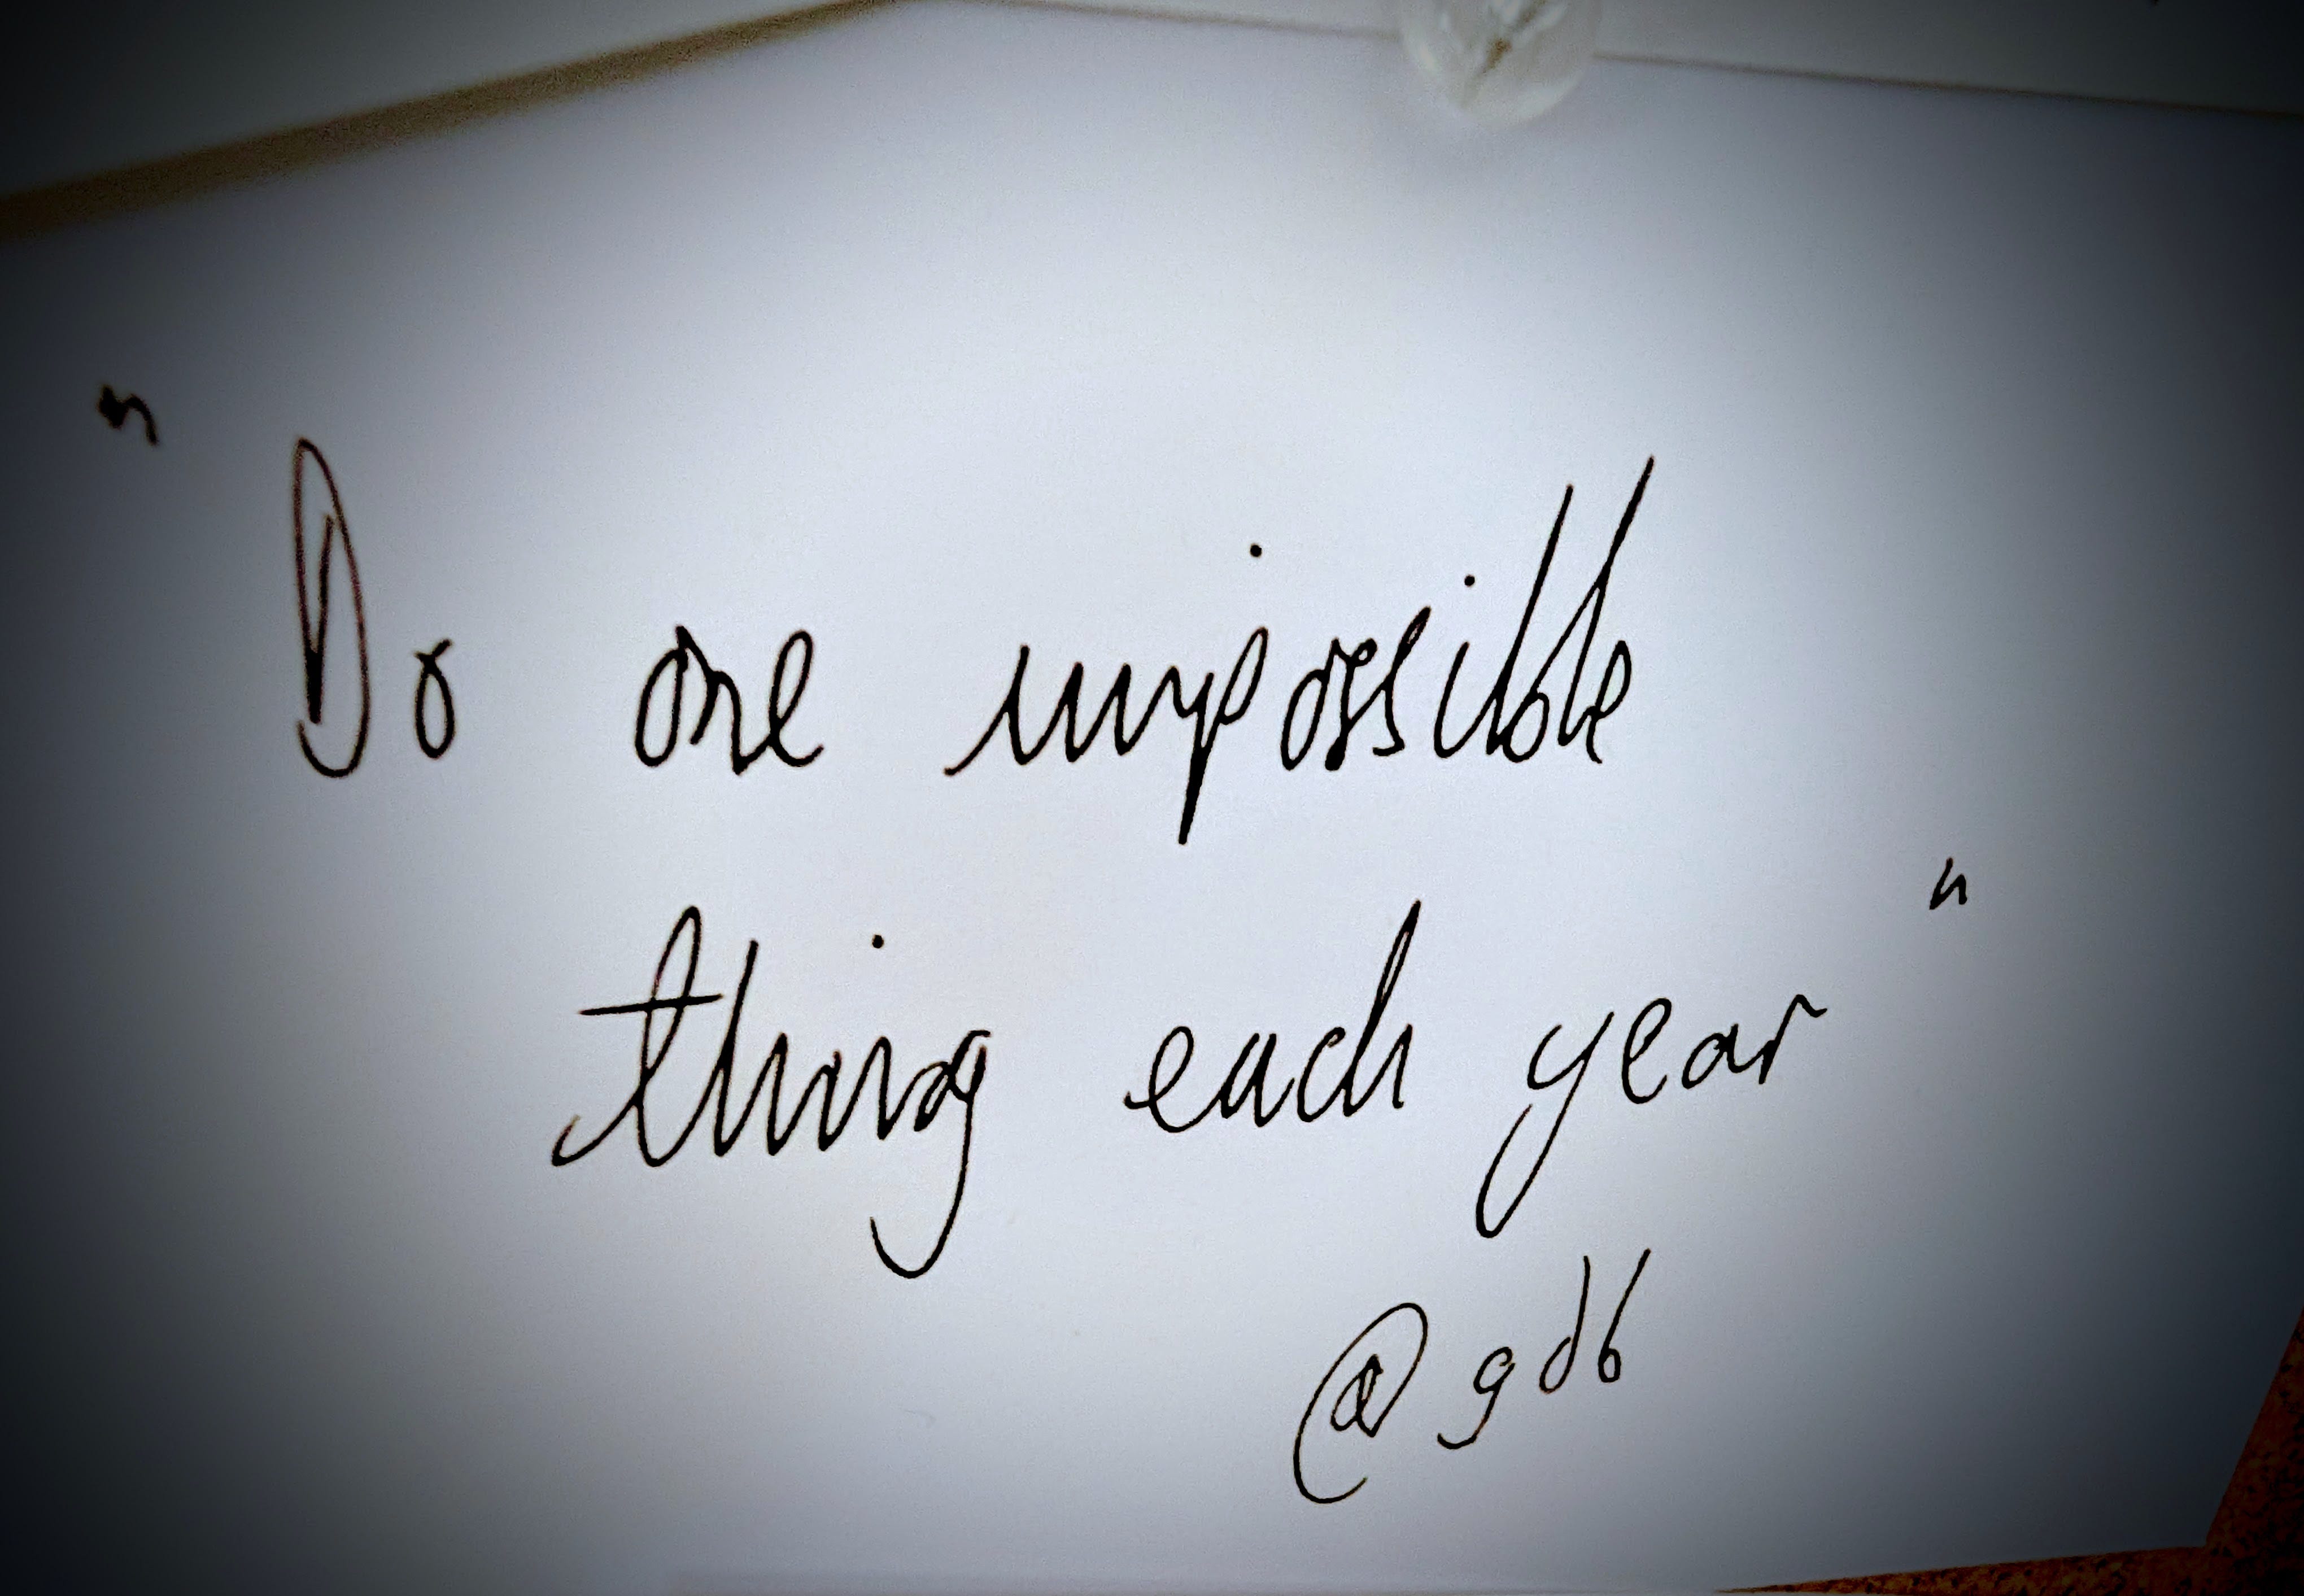 "Do one impossible
thing each year"
@gdb